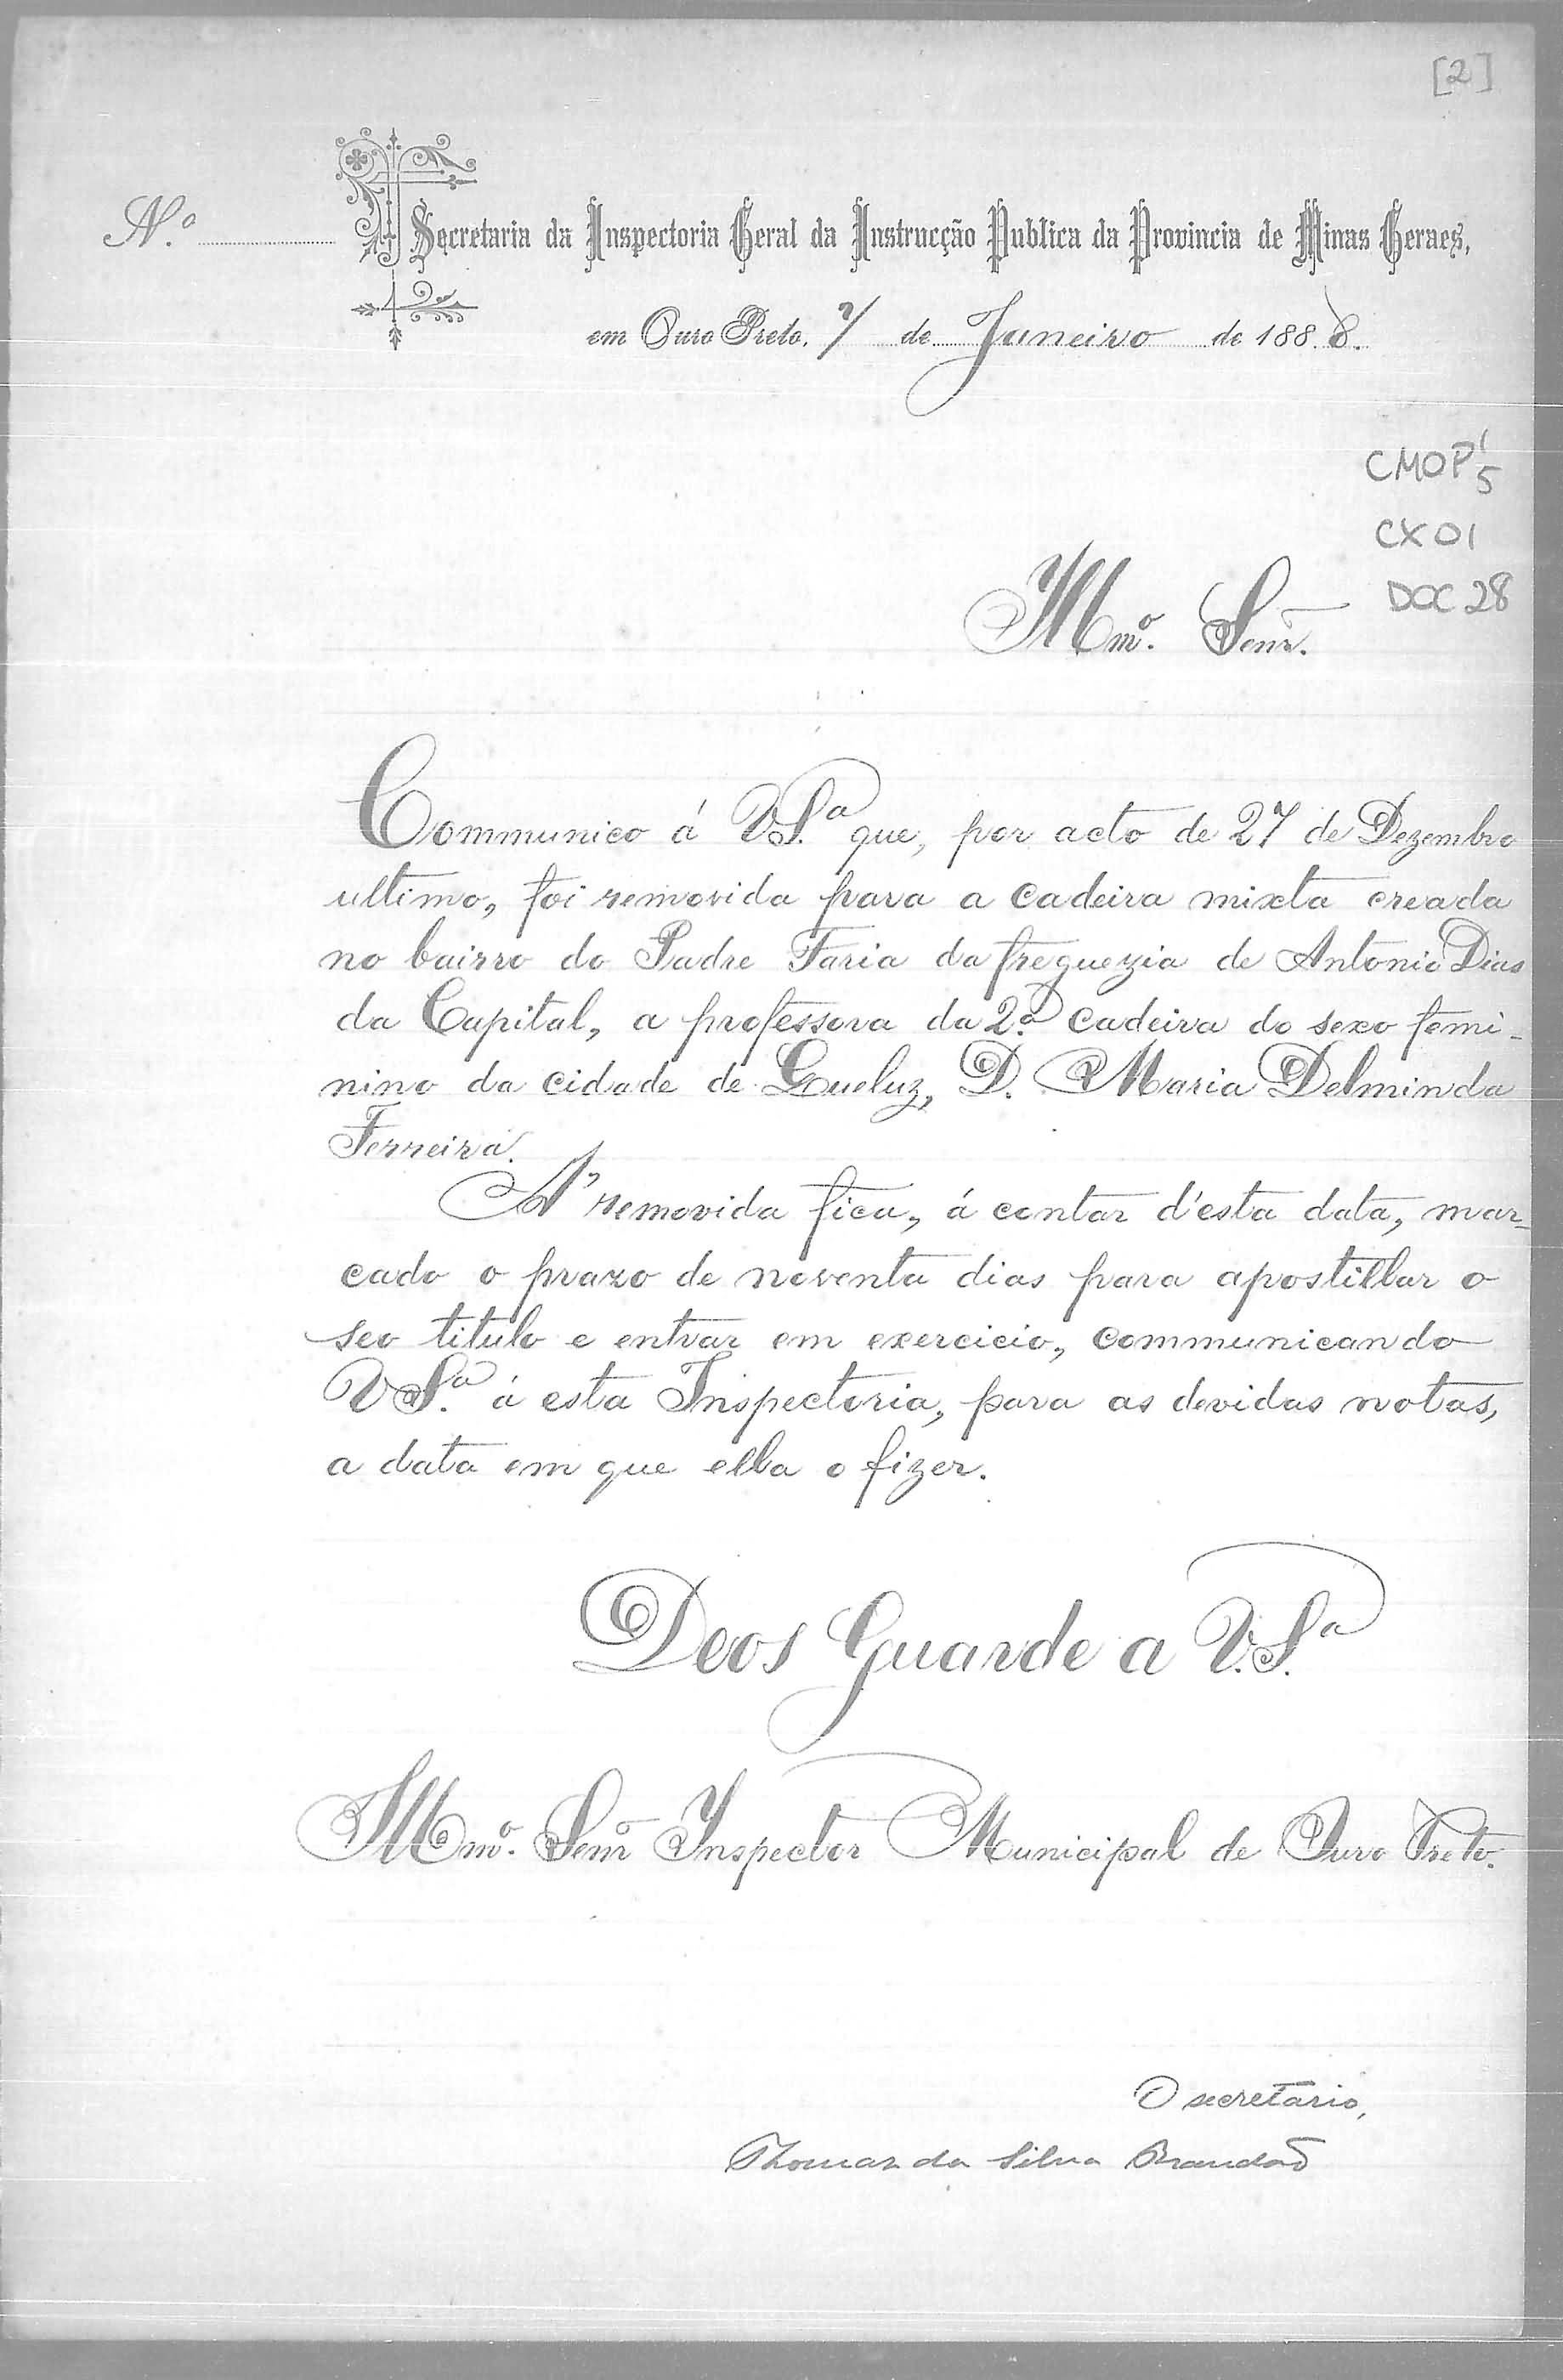 [2]
N.º
Secretaria da Inspectoria Geral da Instrucção Publica da Provincia de Minas Geraes,
em Ouro Preto, 7 de Janeiro de 1888.
CMOP 1/5
CX 01
DOC 28
Illmo. Senr.
Communico á V.S.ª que, por acto de 27 de Dezembro
ultimo, foi removida para a cadeira mixta creada
no bairro do Padre Faria da freguezia de Antonio Dias
da Capital, a professora da 2.ª cadeira do sexo femi-
nino da cidade de Queluz, D. Maria Delminda
Ferreira.
A' removida fica, á contar d'esta data, mar-
cado o prazo de noventa dias para apostillar o
seo titulo e entrar em exercicio, communicando
V.S.ª á esta Inspectoria, para as devidas notas,
a data em que ella o fizer.
Deos Guarde a V.S.ª
Illmo. Senr. Inspector Municipal de Ouro Preto.
O secretario,
Thomaz da Silva Brandão